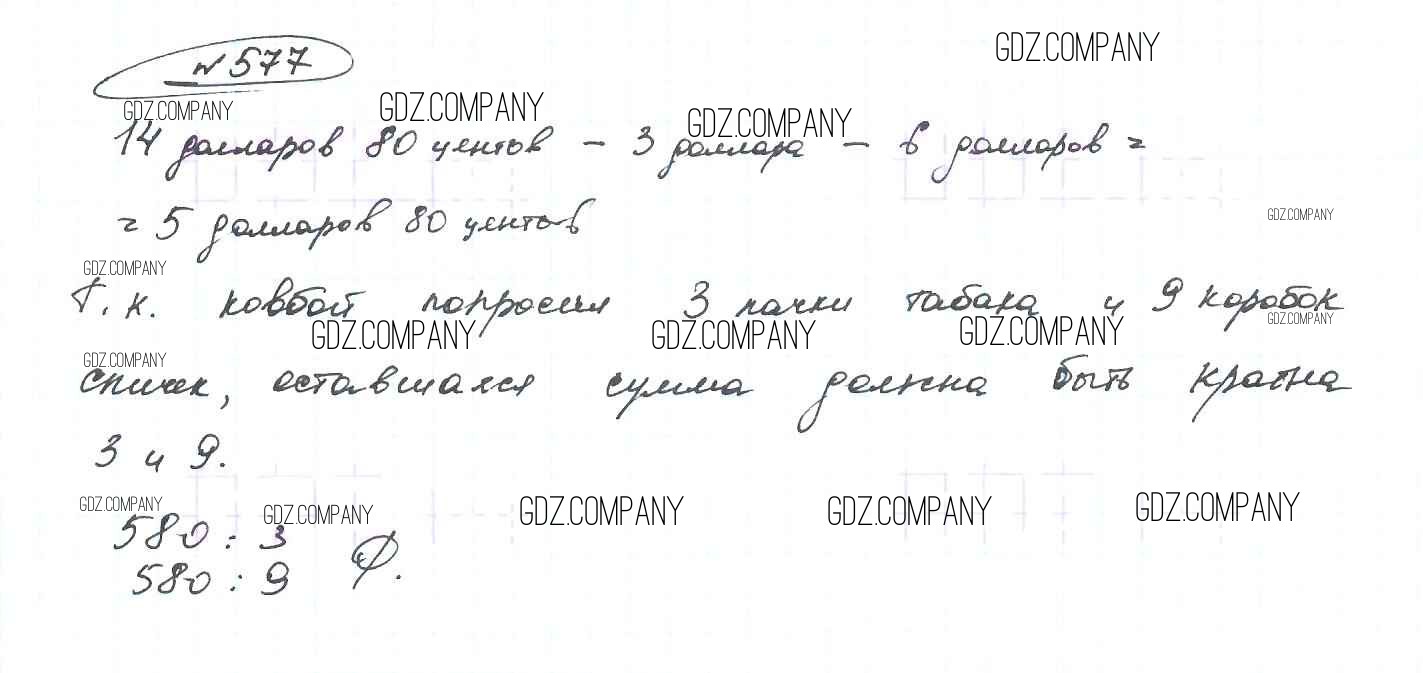 №577
GDZ.COMPANY
GDZ.COMPANY GDZ.COMPANY GDZ.COMPANY
14 долларов 80 центов – 3 доллара – 6 долларов =
= 5 долларов 80 центов
GDZ.COMPANY
GDZ.COMPANY
Т.к. ковбой попросил 3 пачки табака и 9 коробок
GDZ.COMPANY GDZ.COMPANY GDZ.COMPANY GDZ.COMPANY
GDZ.COMPANY
спичек, оставшаяся сумма должна быть кратна
3 и 9.
GDZ.COMPANY GDZ.COMPANY GDZ.COMPANY GDZ.COMPANY GDZ.COMPANY
580 : 3
580 : 9